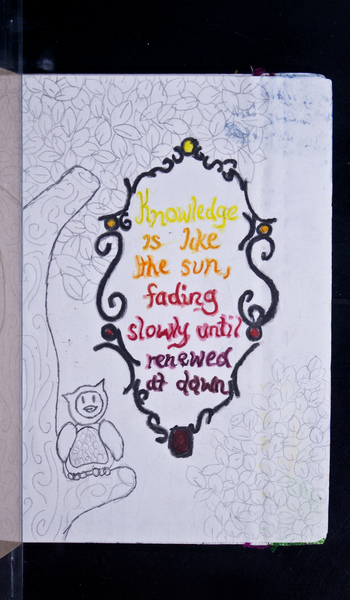 Knowledge
is like
the sun,
fading
slowly until
renewed
at dawn